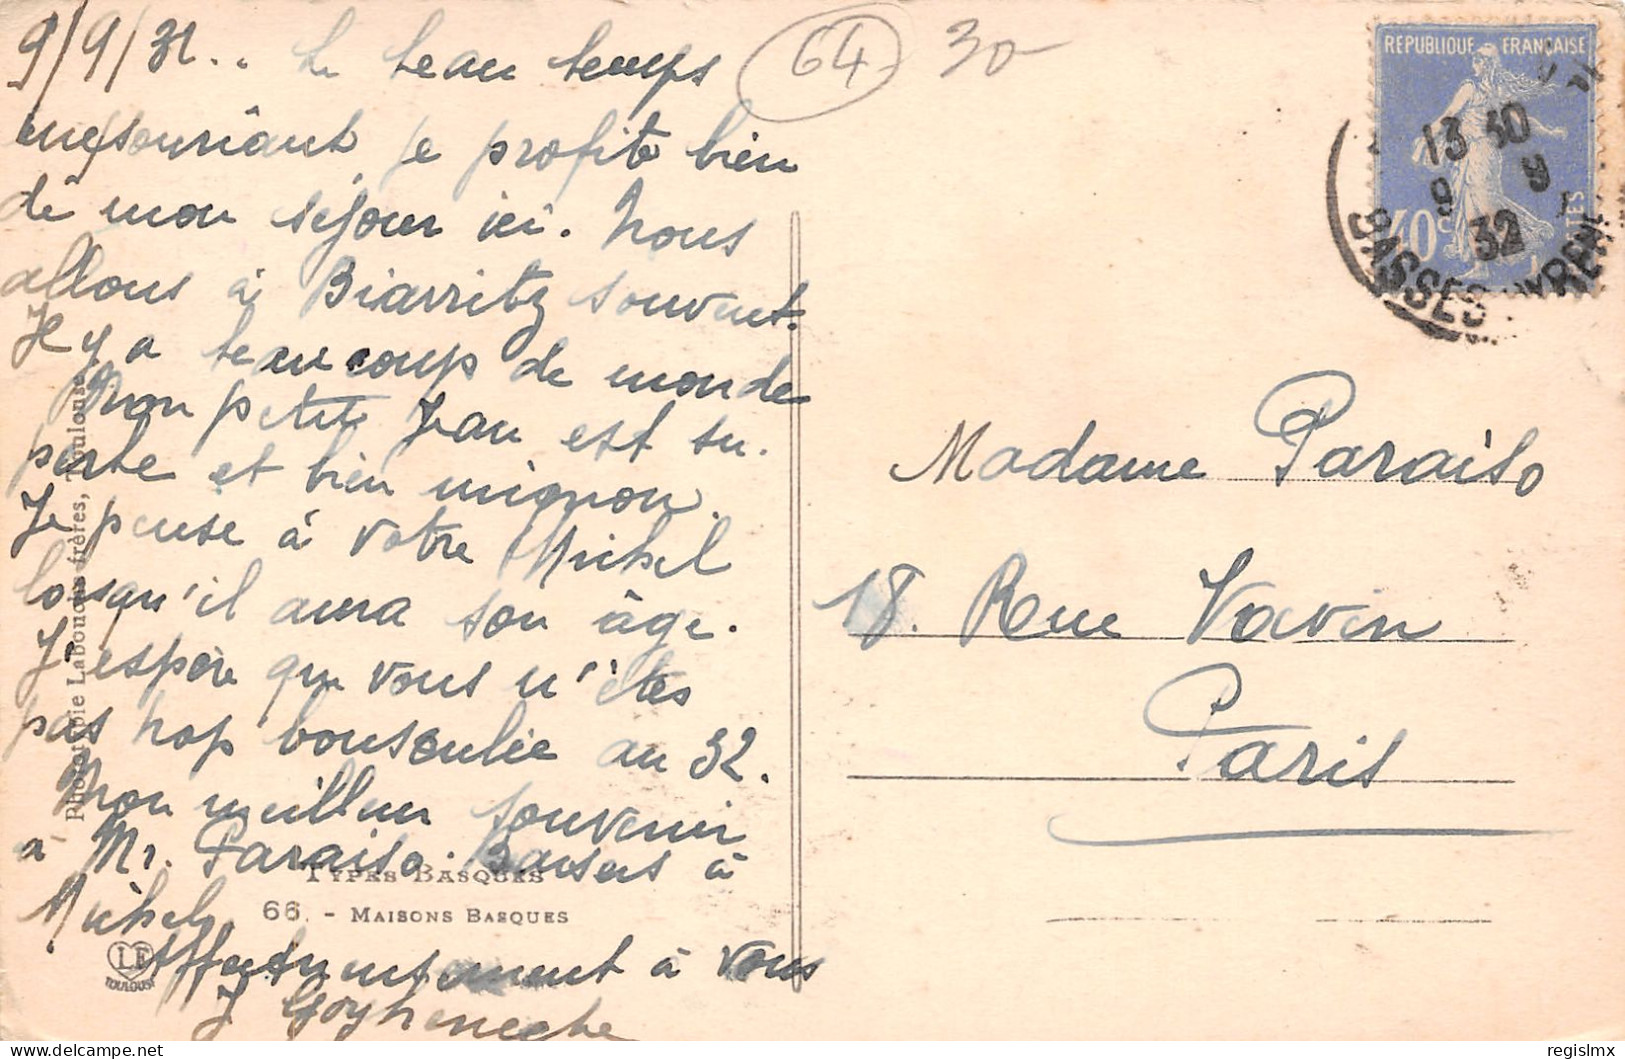 9/9/32.. Le beau temps
me souriant je profite bien
de mon séjour ici. Nous
allons à Biarritz souvent.
Il y a beaucoup de monde
Mon petit Jean est su-
perbe et bien mignon.
Je pense à votre Michel
lorsqu'il aura son âge.
J'espère que vous n'êtes
pas trop bousculée au 32.
Mon meilleur souvenir
à Mr. Paraiso. Baisers à
Michel.
Affectueusement à vous
J Goyheneche
64
30
REPUBLIQUE FRANÇAISE
40c
POSTES
13 30
9 9
32
BASSES PYRENEES
Madame Paraiso
18. Rue Vavin
Paris
Phototypie Labouche frères, Toulouse
TYPES BASQUES
66. - MAISONS BASQUES
LF
TOULOUSE
regislmx